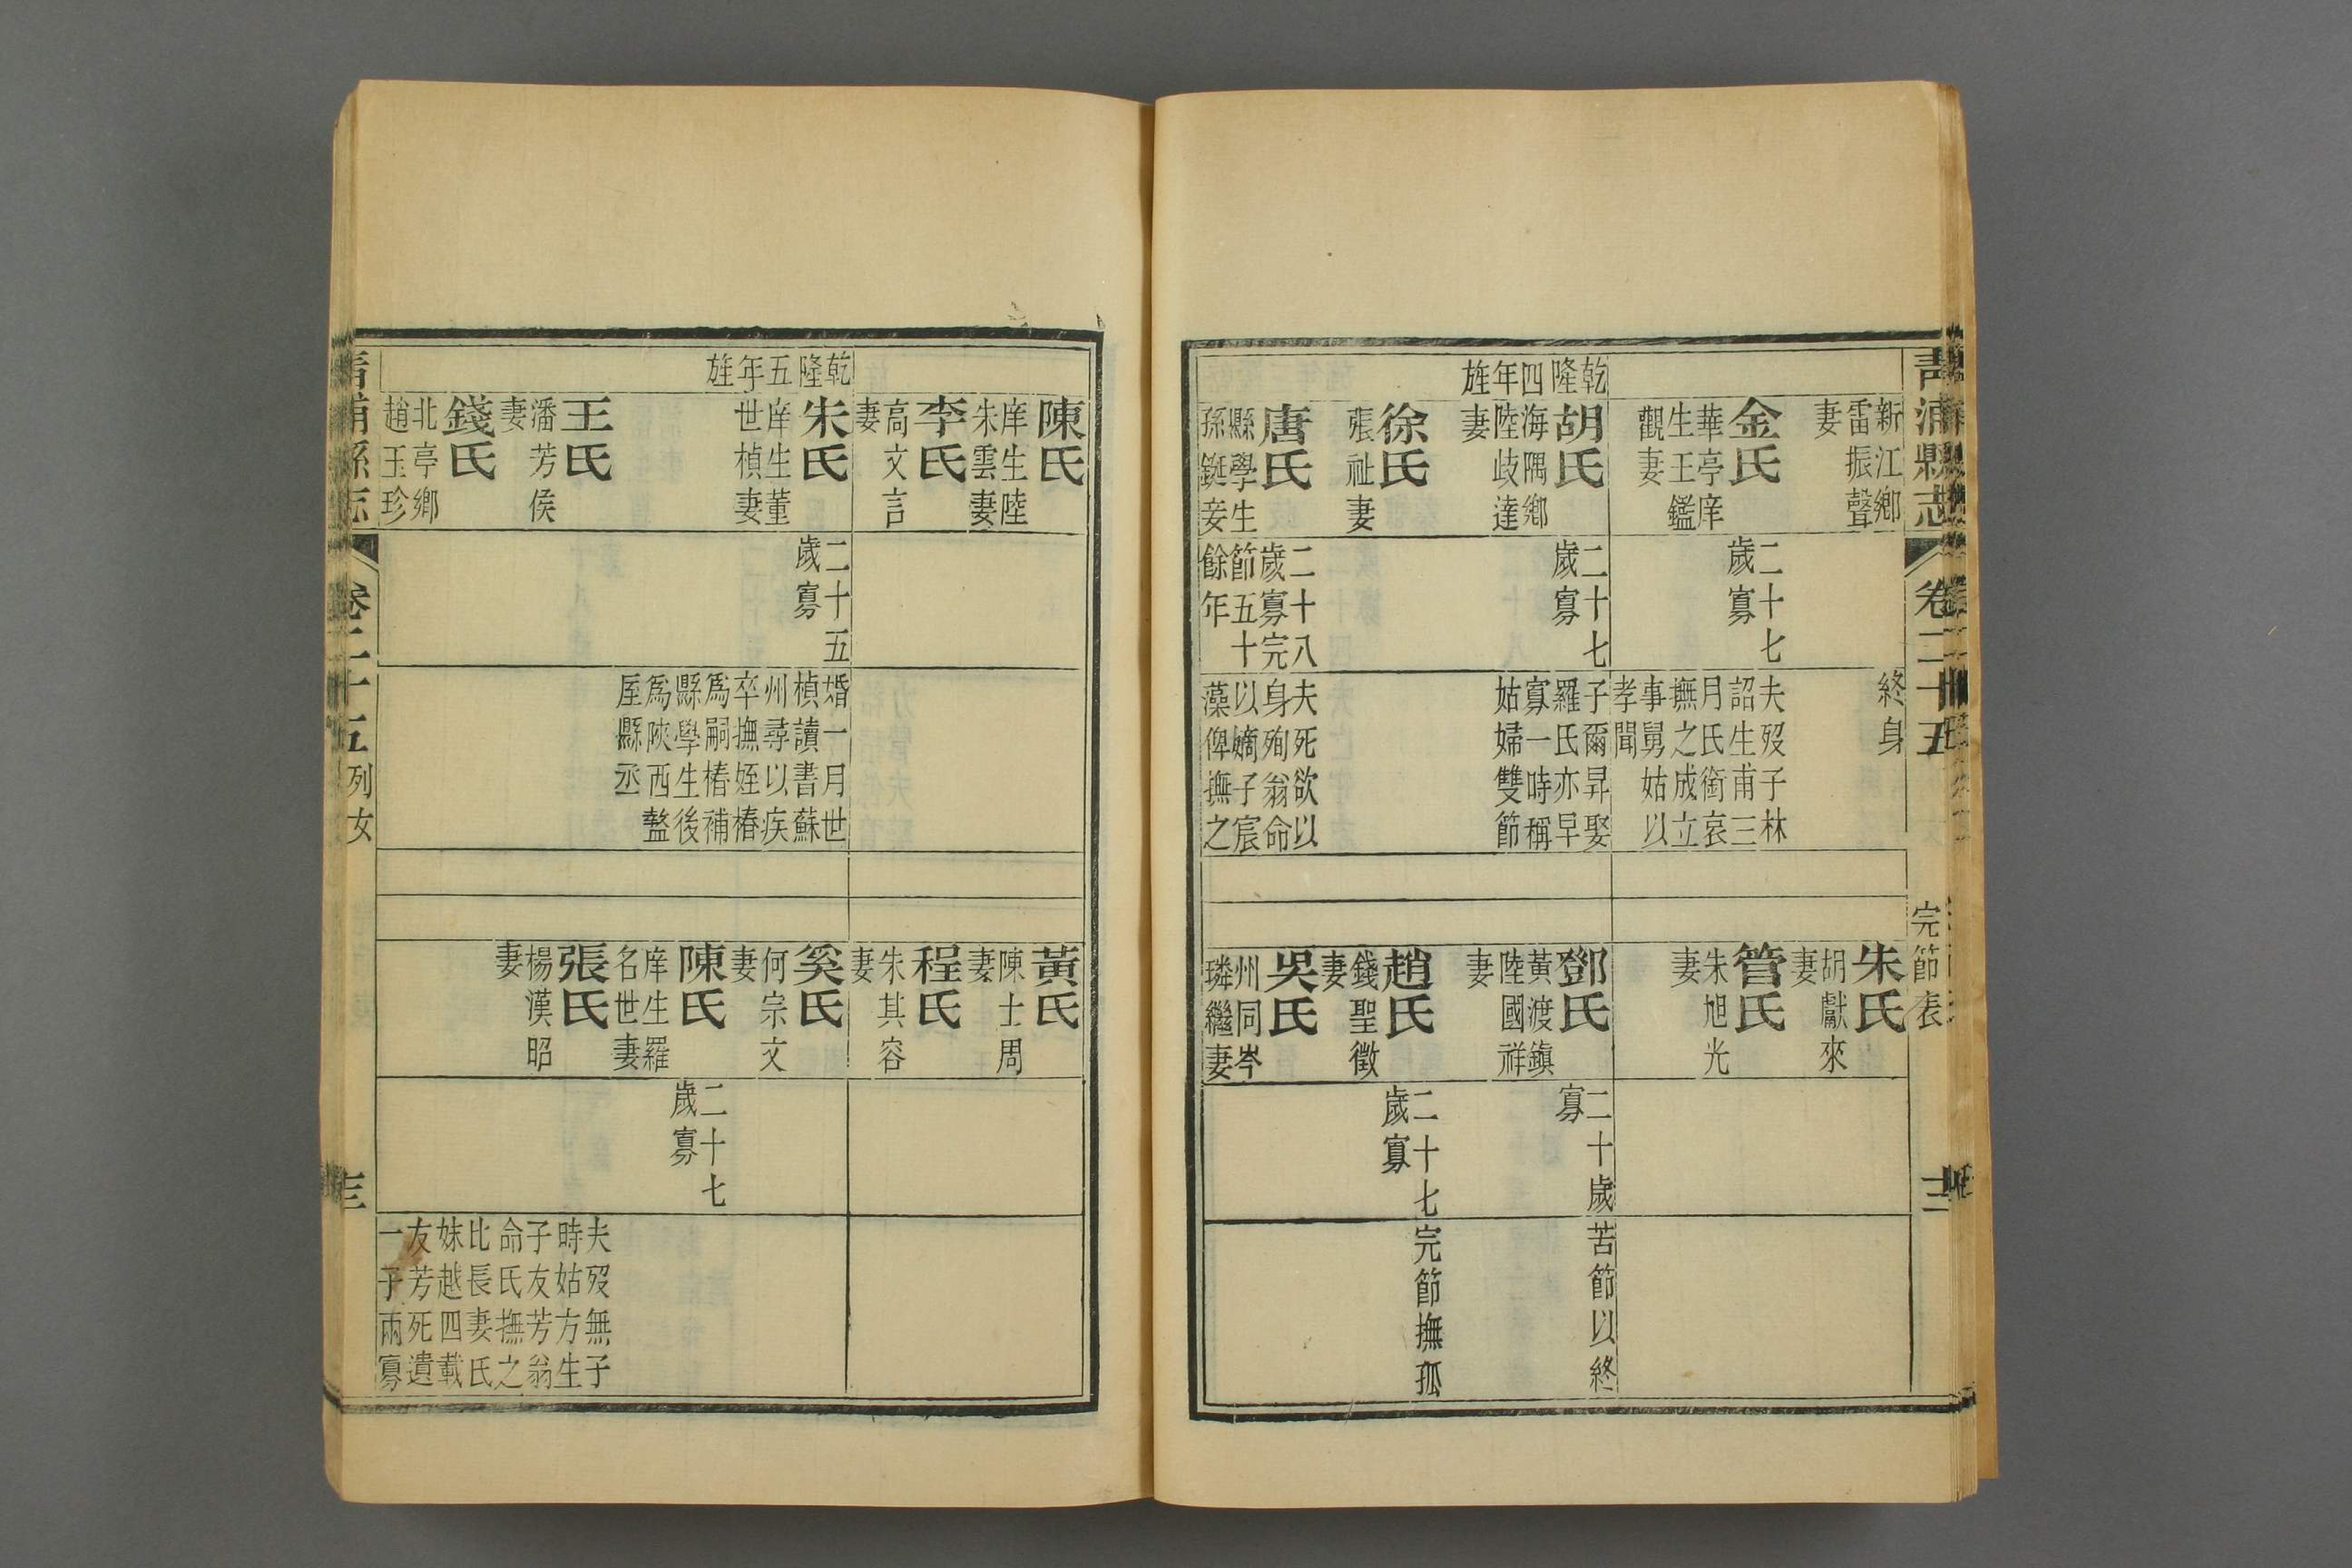 青浦縣志
卷二十五
完節表
新江鄉
雷振聲
妻
終身
金氏
華亭庠
生王鑑
觀妻
二十七
歲寡
夫歿子林
詔生甫三
月氏銜哀
撫之成立
事舅姑以
孝聞
乾隆四年旌
胡氏
海隅鄉
陸歧達
妻
二十七
歲寡
子爾昇娶
羅氏亦早
寡一時稱
姑婦雙節
徐氏
張祉妻
唐氏
縣學生
孫鋌妾
二十八
歲寡完
節五十
餘年
夫死欲以
身殉翁命
以嫡子宸
藻俾撫之
朱氏
胡獻來
妻
管氏
朱旭光
妻
鄧氏
黃渡鎭
陸國祥
妻
二十歲
寡
苦節以終
趙氏
錢聖徵
妻
二十七
歲寡
完節撫孤
吳氏
州同岑
璘繼妻
陳氏
庠生陸
朱雲妻
李氏
高文言
妻
乾隆五年旌
朱氏
庠生董
世楨妻
二十五
歲寡
婚一月世
楨讀書蘇
州尋以疾
卒撫姪椿
爲嗣椿補
縣學生後
爲陝西盩
厔縣丞
王氏
潘芳侯
妻
錢氏
北亭鄉
趙玉珍
黃氏
陳士周
妻
程氏
朱其容
妻
奚氏
何宗文
妻
陳氏
庠生羅
名世妻
二十七
歲寡
張氏
楊漢昭
妻
夫歿無子
時姑方生
子友芳翁
命氏撫之
比長妻氏
妹越四載
友芳死遺
一子兩寡
青浦縣志
卷二十五
列女